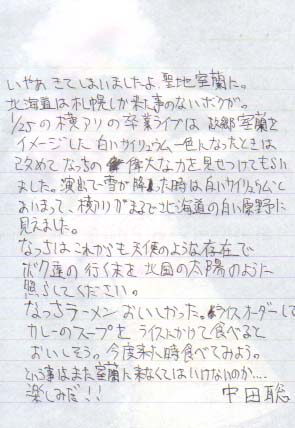 いやあ きてしまいましたよ、聖地室蘭に。
北海道は札幌しか来た事のないボクが。
1/25の横アリの卒業ライブは 故郷室蘭を
イメージした 白いサイリュウム一色になったときは
改めて なっちの偉大な力を見せつけてもらい
ました。演出で雪が降った時は白いサイリュウムと
あいまって、横アリがまるで北海道の白い原野に
見えました。
なっちはこれからも天使のような存在で
ボク達の行く末を北国の太陽のように
照らしてください。
なっちラーメンおいしかった。ライスオーダーして
カレーのスープをライスにかけて食べると
おいしそう。今度来た時食べてみよう。
という事はまた室蘭に来なくてはいけないのか…。
楽しみだ!! 中田聡